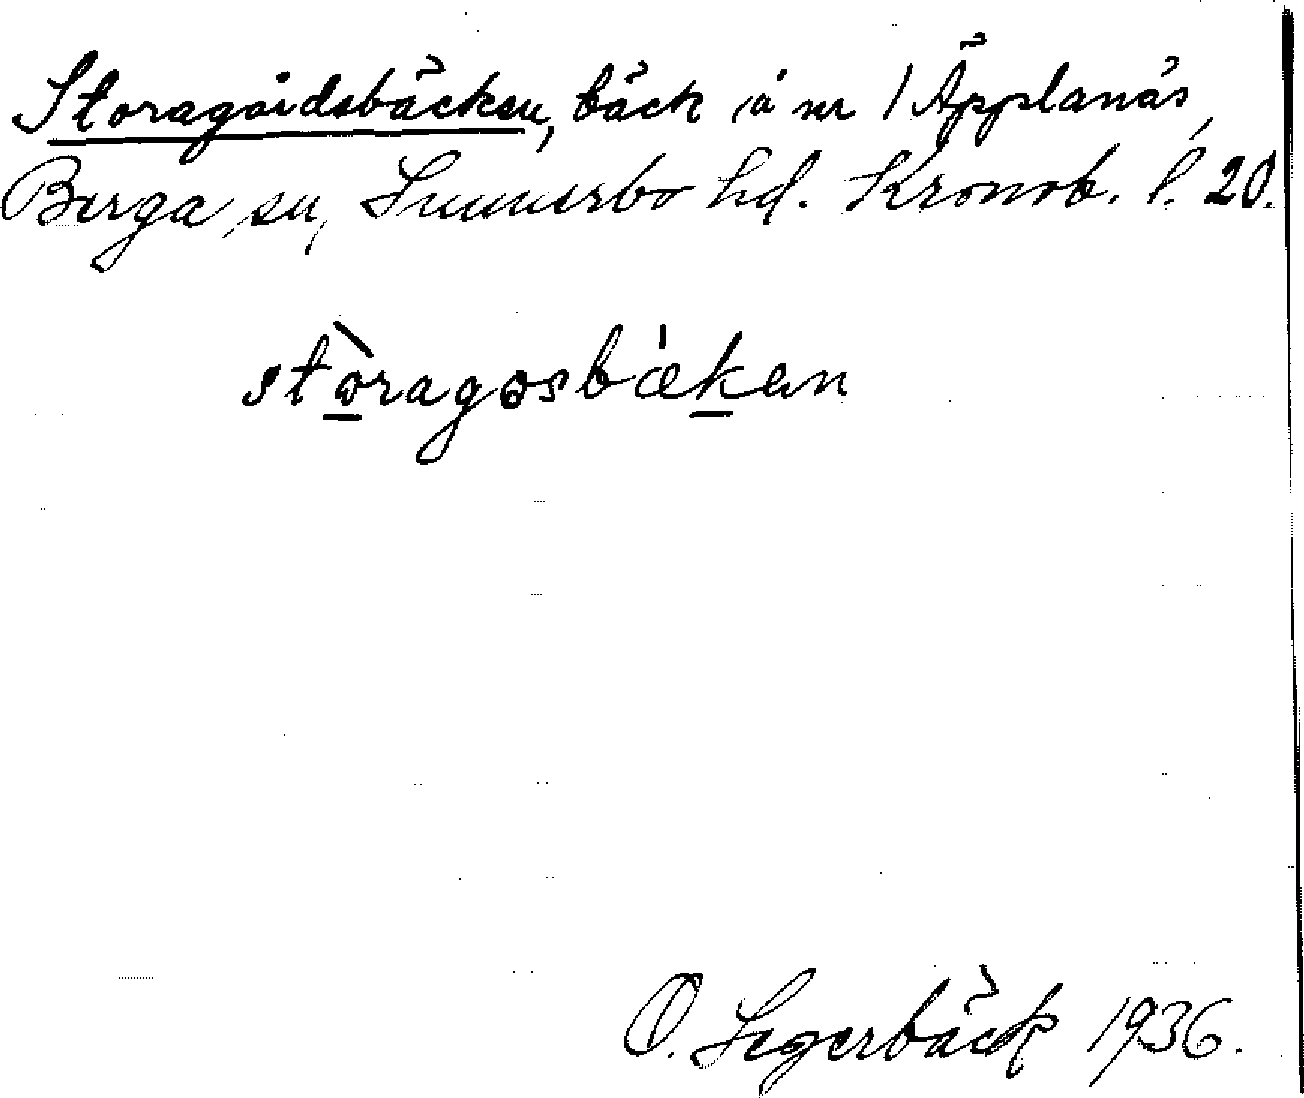 Storagårdsbäcken, bäck å nr 1 Äpplanäs,
Berga sn, Sunnerbo hd. Kronob. l. 20.
stòragəsbækan
O. Segerbäck 1936.